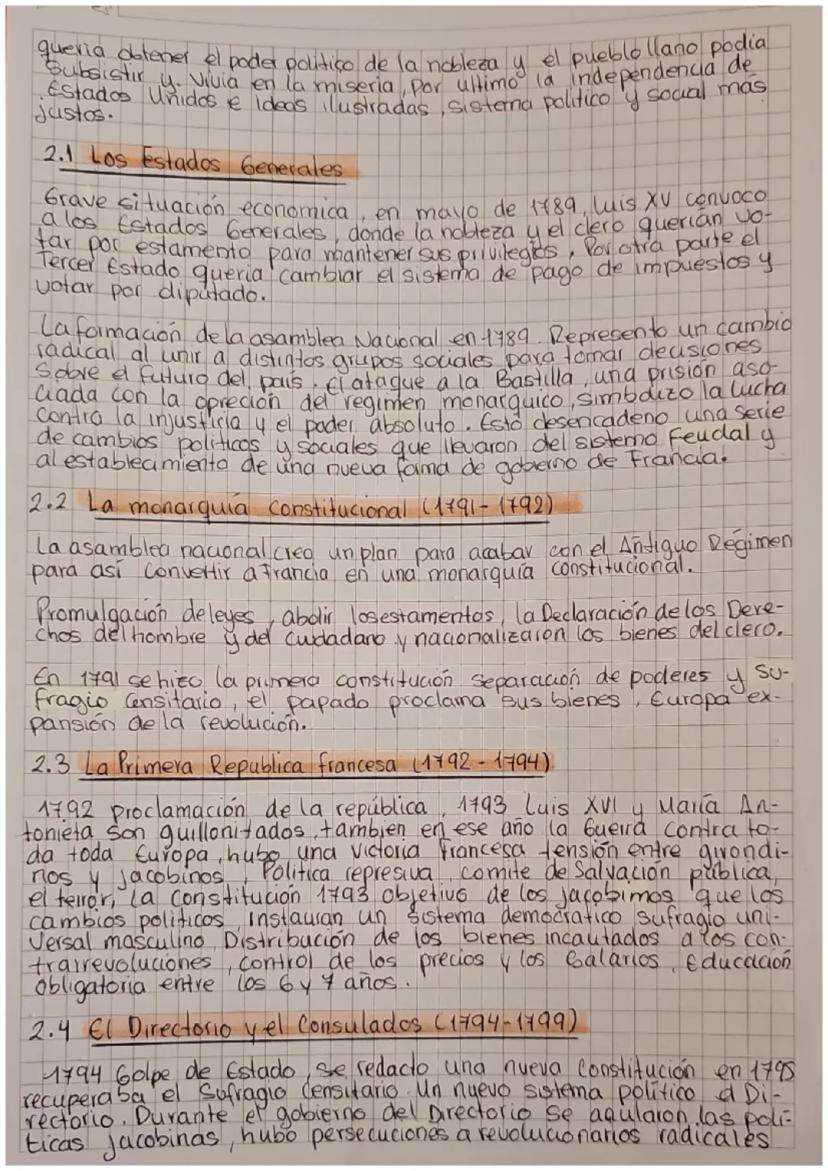 queria obtener el poder politico de la nobleza y el pueblo llano podia
subsistir y vivia en la miseria, por ultimo la independencia de
Estados Unidos e ideas ilustradas, sistema politico y social más
justos.
2.1 Los Estados Generales
Grave situación economica, en mayo de 1789, Luis XV convoco
a los Estados Generales, donde la nobleza y el clero querían vo-
tar por estamento para mantener sus privilegios, Por otra parte el
Tercer Estado queria cambiar el sistema de pago de impuestos y
votar por diputado.
La formación de la asamblea Nacional en 1789. Represento un cambio
radical al unir a distintos grupos sociales para tomar decisiones
sobre el futuro del país. El ataque a la Bastilla, una prisión aso-
ciada con la opreción del regimen monarquico, simbolizo la lucha
contra la injusticia y el poder absoluto. Esto desencadeno una serie
de cambios politicos y sociales que llevaron del sistema Feudal y
al establecimiento de una nueva forma de gobierno de Francia.
2.2 La monarquía constitucional (1791-1792)
La asamblea nacional creo un plan para acabar con el Antiguo Régimen
para así convertir a Francia en una monarquía constitucional.
Promulgación de leyes, abolir los estamentos, la Declaración de los Dere-
chos del hombre y del Ciudadano y nacionalizaron los bienes del clero.
En 1791 se hizo la primera constitución separación de poderes y su-
fragio Censitario, el papado proclama sus bienes, Europa ex-
pansión de la revolución.
2.3 La Primera Republica francesa (1792-1794)
1792 proclamación de la república, 1793 Luis XVI y María An-
tonieta son guillonitados, tambien en ese año la Guerra contra to-
da toda Europa, hubo una victoria francesa tensión entre girondi-
nos y jacobinos, Politica represiva, comite de Salvación pública,
el terror, La constitución 1793 objetivo de los jacobimos que los
cambios politicos, instauran un sistema democratico sufragio uni-
versal masculino, Distribución de los bienes incautados a los con-
trarrevoluciones, control de los precios y los Salarios, Educación
obligatoria entre los 6 y 7 años.
2.4 El Directorio y el Consulados (1794-1799)
1794 Golpe de Estado, se redacto una nueva Constitución en 1795
recuperaba el Sufragio Censitario. Un nuevo sistema politico el Di-
rectorio. Durante el gobierno del Directorio se aqularon las polí-
ticas jacobinas, hubo persecuciones a revolucionarios radicales